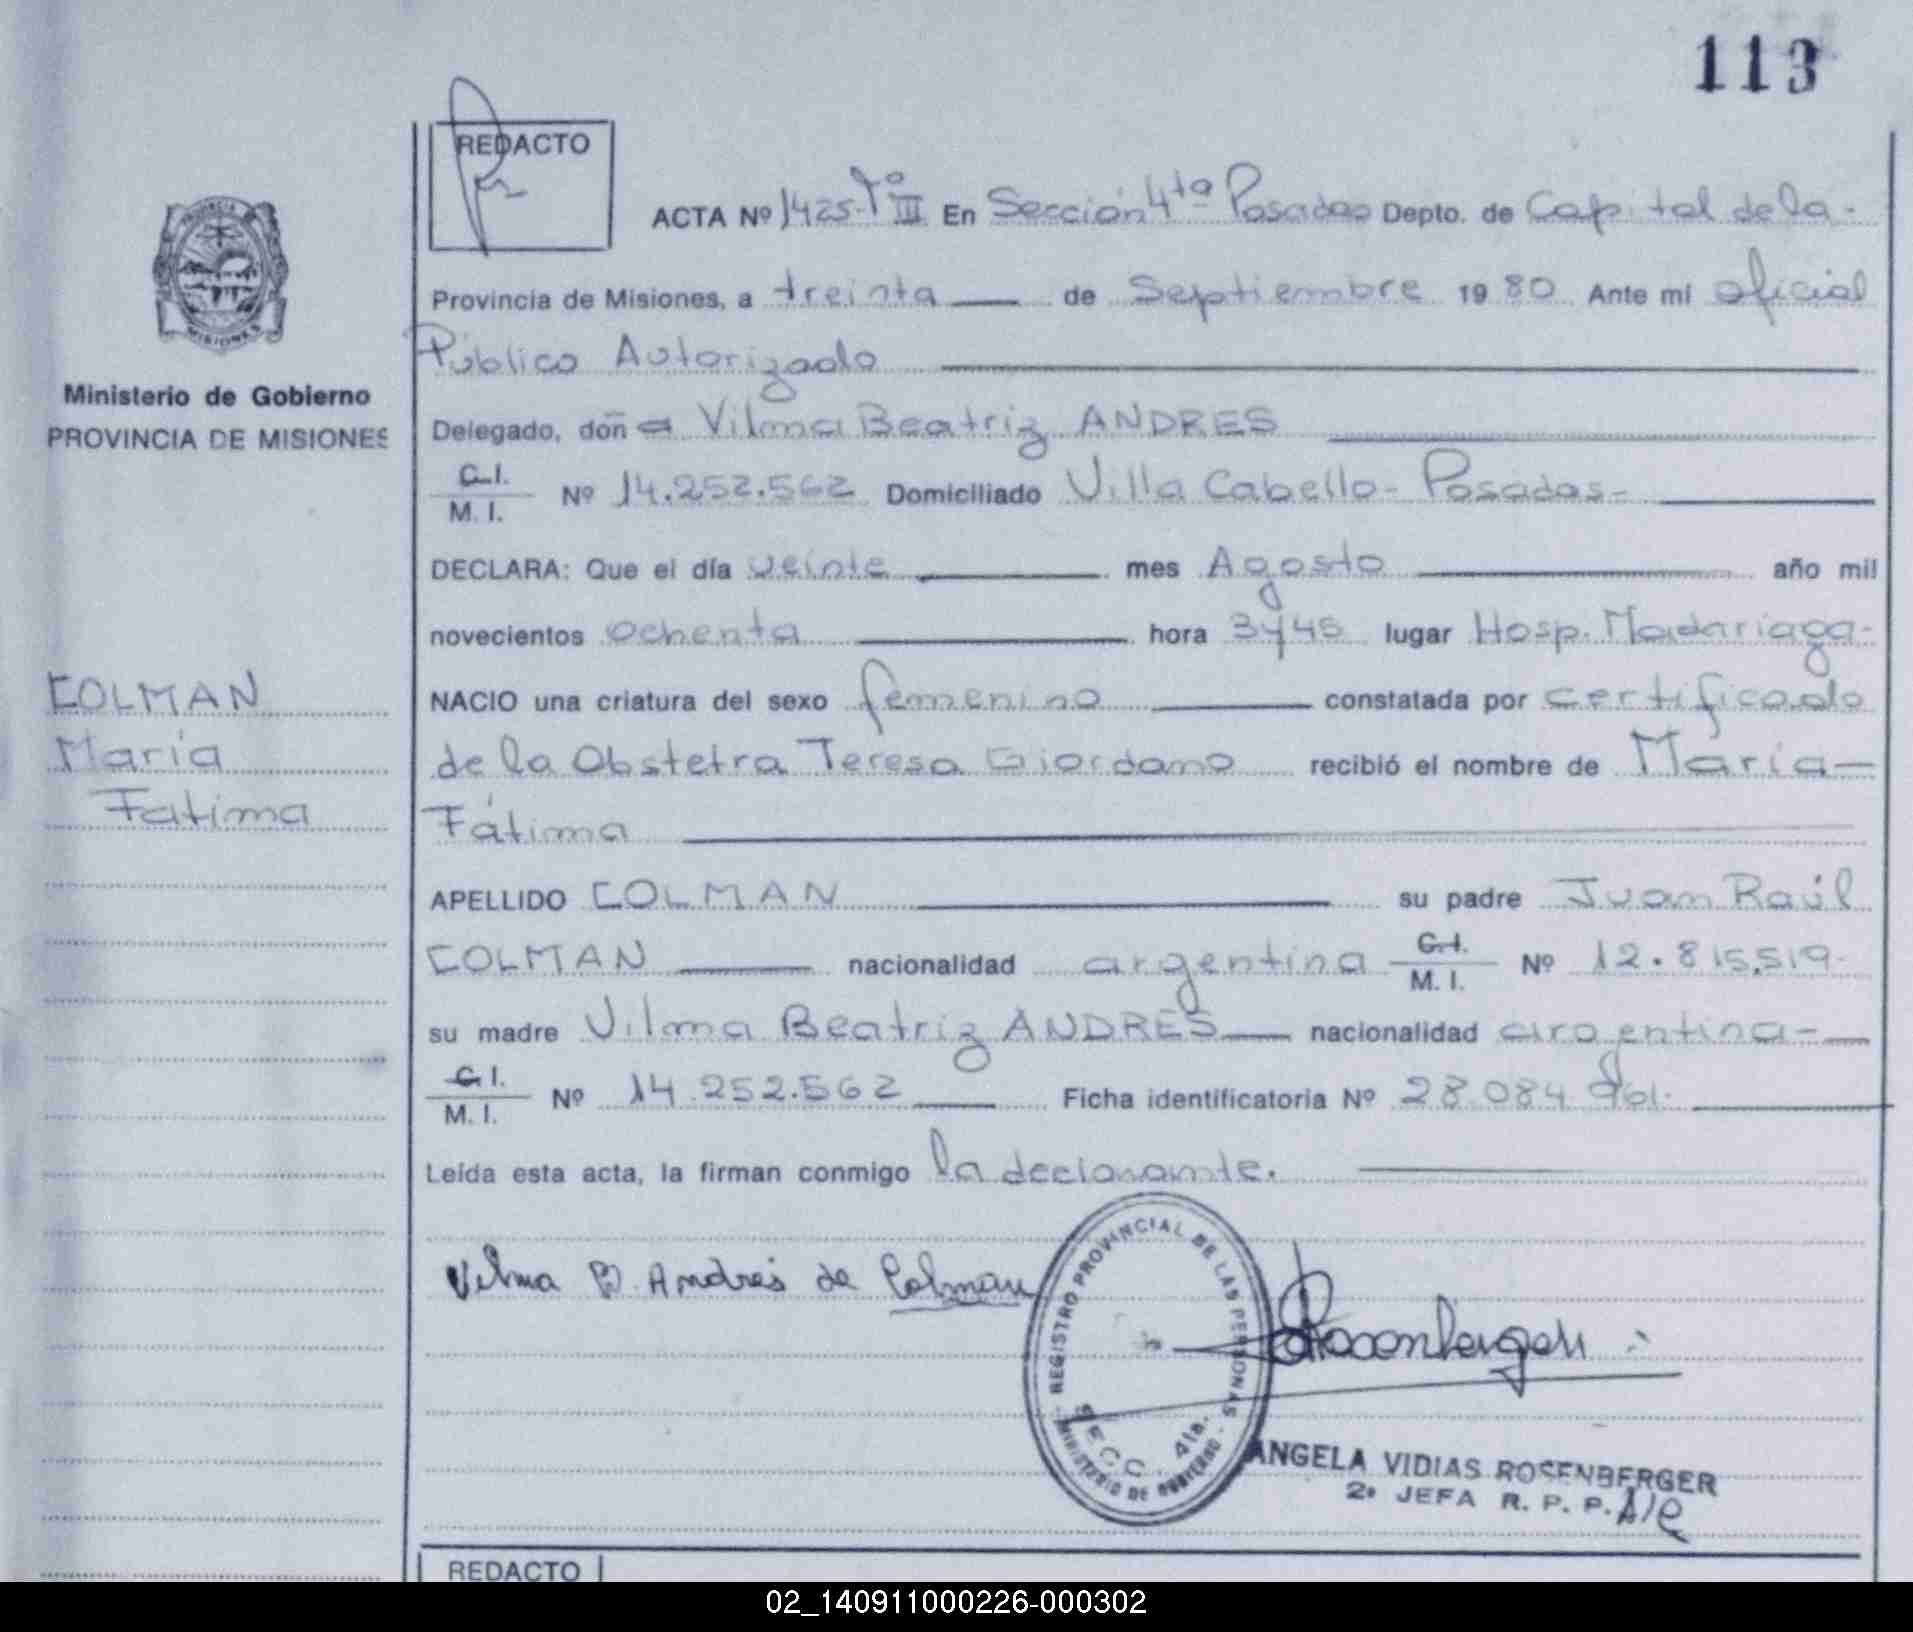 113
REDACTO
ACTA Nº 1425-Tº III En Sección 4ta Posadas Depto. de Capital de la-
Provincia de Misiones, a treinta de Septiembre 1980 Ante mi oficial
Público Autorizado
Delegado, doña Vilma Beatriz ANDRES
C.I.
M. I. Nº 14.252.562 Domiciliado Villa Cabello- Posadas-
DECLARA: Que el día veinte mes Agosto año mil
novecientos ochenta hora 3y45 lugar Hosp. Madariaga-
NACIO una criatura del sexo femenino constatada por certificado
de la Obstetra Teresa Giordano recibió el nombre de María-
Fátima
APELLIDO COLMAN su padre Juan Raúl
COLMAN nacionalidad argentina C.I.
M. I. Nº 12.815.519-
su madre Vilma Beatriz ANDRES nacionalidad argentina-
C.I.
M. I. Nº 14.252.562 Ficha identificatoria Nº 28.084.961.
Leída esta acta, la firman conmigo la declarante.
Vilma B. Andres de Colman
REGISTRO PROVINCIAL DE LAS PERSONAS
MINISTERIO DE GOBIERNO
SECC. 4ta.
Rosenberger
ANGELA VIDIAS ROSENBERGER
2º JEFA R. P. P. A/C
REDACTO
PROVINCIA
MISIONES
Ministerio de Gobierno
PROVINCIA DE MISIONES
COLMAN
María
Fatima
02_140911000226-000302